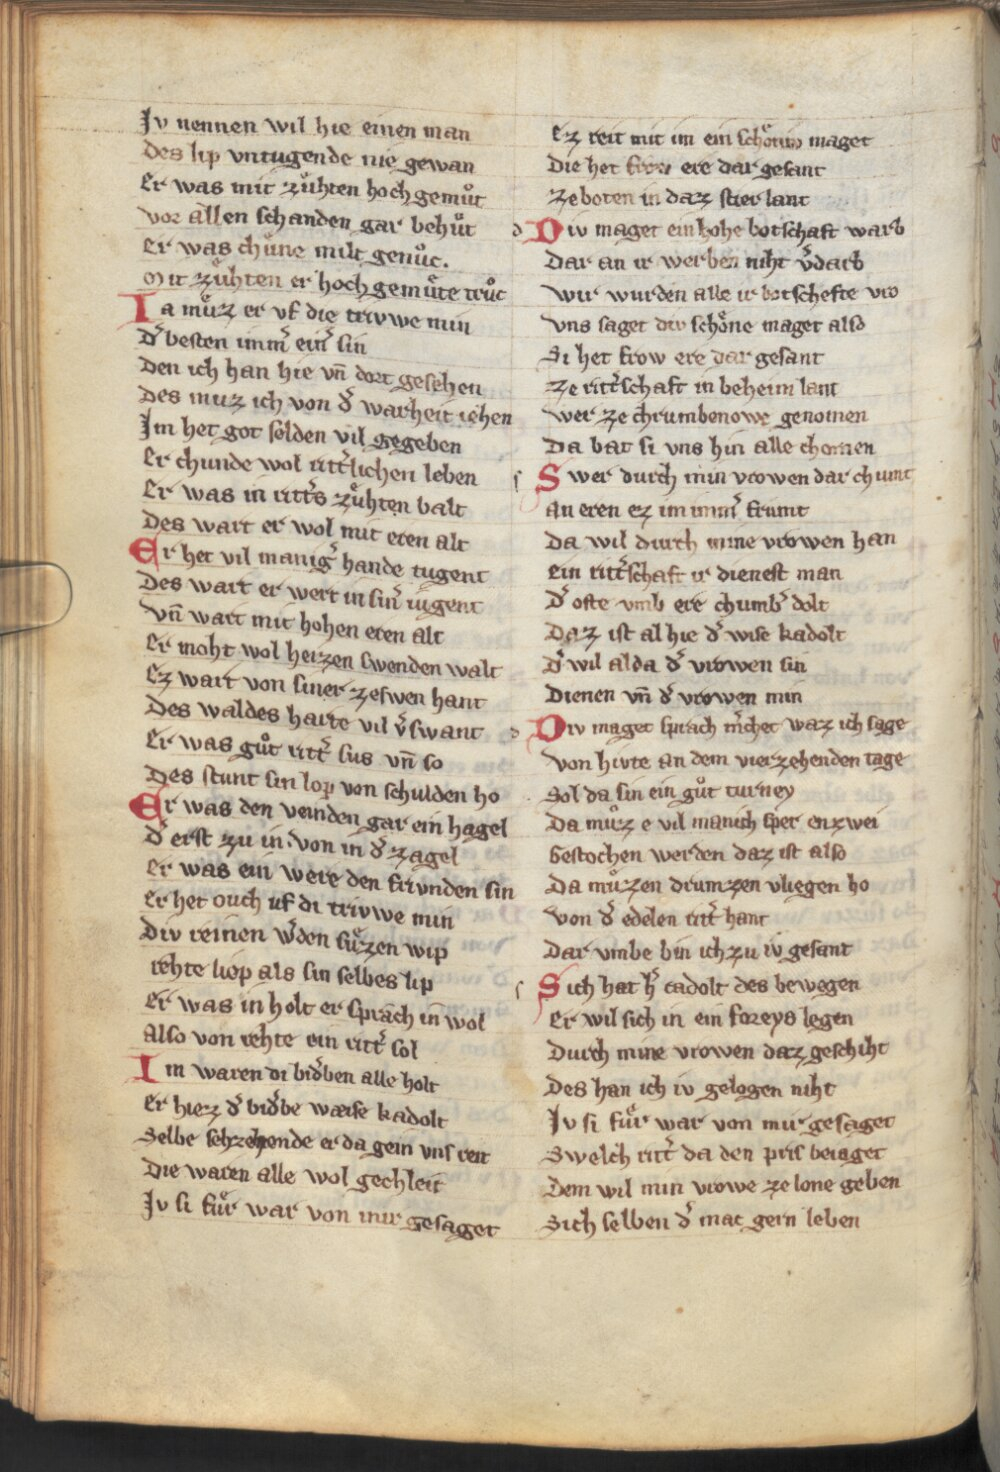 Jv nennen wil hie einen man
Des lip vntugende nie gewan
Er was mit zuͤhten hoch gemuͦt
Vor allen schanden gar behuͦt
Er was chuͤne milt genuͦc.
Mit zuͤhten er hoch gemuͤte truͦc
Ia muͦz er vf die trivwe min
D̾ besten imm̾ ein̾ sin
Den ich han hie vn̄ dort gesehen
Des muz ich von d̾ warheit iehen
Im het got selden vil gegeben
Er chunde wol ritt̾lichen leben
Er was in ritt̾s zuͤhten balt
Des wart er wol mit eren alt
Er het vil manig̾ hande tugent
Des wart er wert in sin̾ iugent
Vn̄ wart mit hohen eren alt
Er moht wol heizen swenden walt
Ez wart von siner zeswen hant
Des waldes harte vil v̾swant
Er was guͦt ritt̾ sus vn̄ so
Des stunt sin lop von schulden ho
Er was den veinden gar ein hagel
D̾ erst zu in. von in d̾ zagel
Er was ein were den frivnden sin
Er het ouch uf di trivwe min
Div reinen w̾den suͤzen wip
rehte liep als sin selbes lip
Er was in holt er sprach in wol
Also von rehte ein ritt̾ sol
Im waren di bid̾ben alle holt
Er hiez d̾ bid̾be wæise kadolt
Selbe sehzehende er da gein vns reit
Die waren alle wol gechleit
Jv si fuͤr war von mir gesaget
Ez reit mit im ein schoͤniv maget
Die het frow ere dar gesant
Ze boten in daz stier lant
Div maget ein hohe botschaft warb
Dar an ir werben niht v̾darb
Wir wurden alle ir botschefte vro
Vns saget div schoͤne maget also
Si het frow ere dar gesant
Ze ritt̾schaft in beheim lant
Wer ze chrumbenowe genomen
Da bat si vns hin alle chomen
Swer durch min vrowen dar chumt
An eren ez im imm̾ frumt
Da wil durch mine vrowen han
Ein ritt̾schaft ir dienest man
D̾ ofte vmb ere chumb̾ dolt
Daz ist al hie d̾ wise kadolt
D̾ wil alda d̾ vrowen sin
Dienen vn̄ d̾ vrowen min
Div maget sprach m̾chet waz ich sage
Von hivte an dem vierzehenden tage
Sol da sin ein guͦt turney
Da muͦz e vil manich sper enzwei
Gestochen werden daz ist also
Da muͤzen drumzen vliegen ho
Von d̾ edelen ritt̾ hant
Dar vmbe bin ich zu iv gesant
Sich hat h̾ cadolt des bewegen
Er wil sich in ein foreys legen
Durch mine vrowen daz geschiht
Des han ich iv gelogen niht
Jv si fuͤr war von mir gesaget
Swelch ritt̾ da den pris beiaget
Dem wil min vrowe ze lone geben
Sich selben d̾ mac gern leben